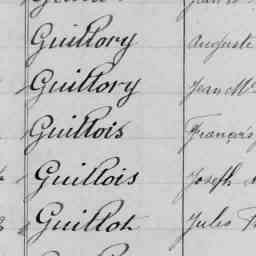 Guillory Auguste
Guillory Jean M
Guillois François
Guillois Joseph
Guillot Jules